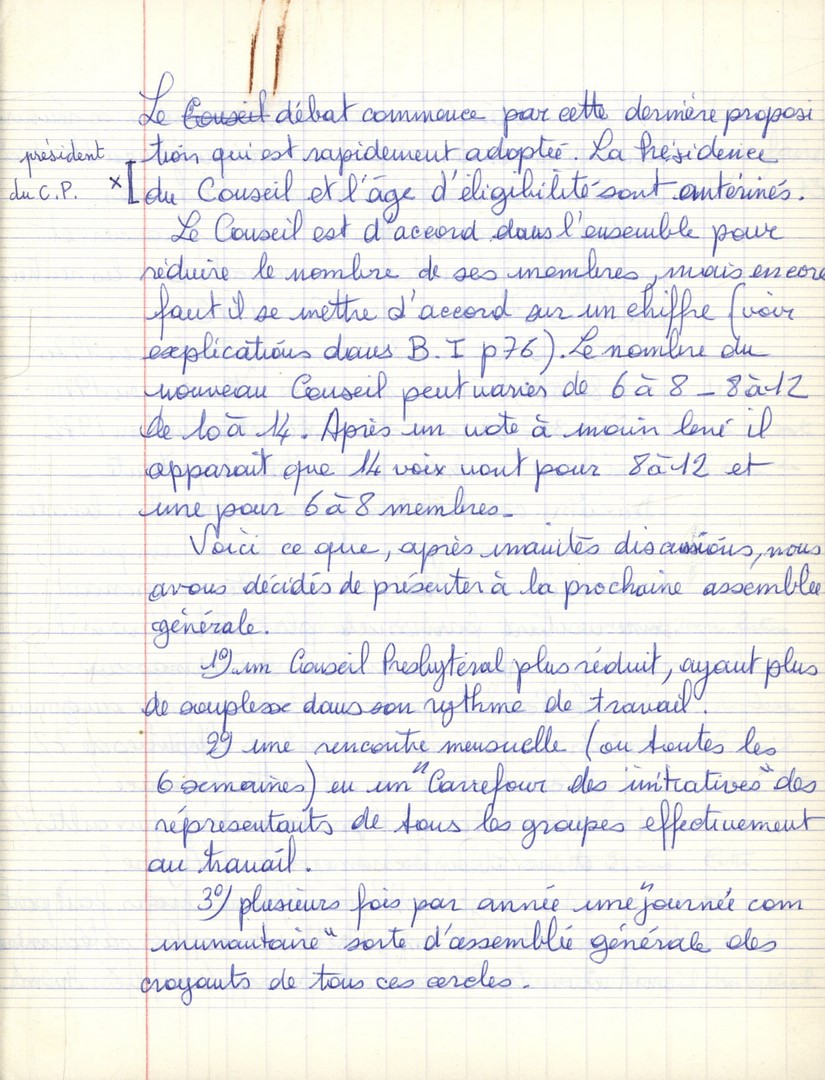 Le ~~Conseil~~ débat commence par cette dernière proposi
président
tion qui est rapidement adoptée. La Présidence
du C.P. × [ du Conseil et l'âge d'éligibilité sont entérinés.
Le Conseil est d'accord dans l'ensemble pour
réduire le nombre de ses membres, mais encore
faut il se mettre d'accord sur un chiffre (voir
explications dans B.I p76). Le nombre du
nouveau Conseil peut varier de 6 à 8 - 8 à 12
de 10 à 14. Après un vote à main levé il
apparait que 14 voix vont pour 8 à 12 et
une pour 6 à 8 membres.
Voici ce que, après maintes discussions, nous
avons décidés de présenter à la prochaine assemblée
générale.
1º) un Conseil Presbytéral plus réduit, ayant plus
de souplesse dans son rythme de travail.
2º) une rencontre mensuelle (ou toutes les
6 semaines) en un "Carrefour des initiatives" des
répresentants de tous les groupes effectivement
au travail.
3º) plusieurs fois par année une "journée com
munautaire" sorte d'assemblée générale des
croyants de tous ces cercles.